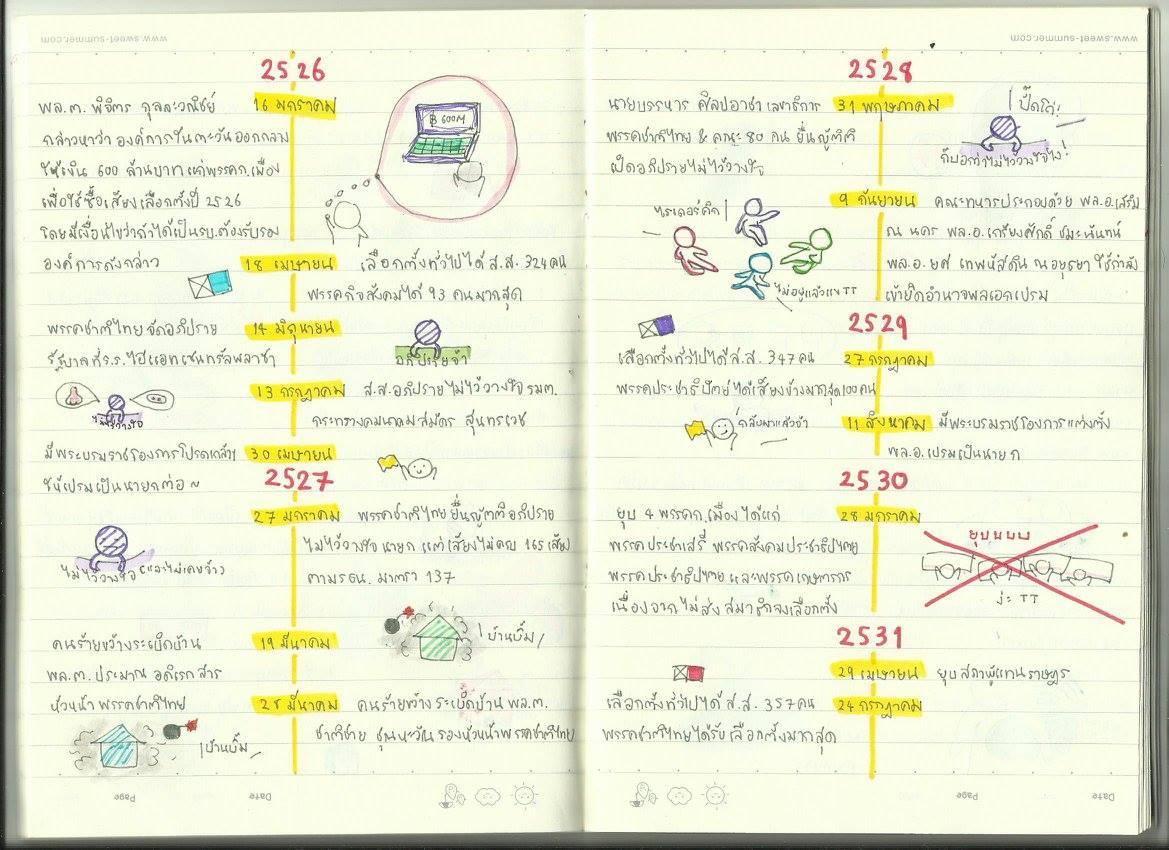 www.sweet-summer.com
2526
พล.ต. พิจิตร กุลละวณิชย์ 16 มกราคม
กล่าวหาว่าองค์การในตะวันออกกลาง
ให้เงิน 600 ล้านบาทแก่พรรคก.เมือง
เพื่อใช้ซื้อเสียงเลือกตั้งปี 2526
โดยมีเงื่อนไขว่าถ้าได้เป็นรบ.ต้องรับรอง
องค์การดังกล่าว
฿ 600M
18 เมษายน เลือกตั้งทั่วไปได้ ส.ส. 324 คน
พรรคกิจสังคมได้ 93 คนมากสุด
พรรคชาติไทยจัดอภิปราย 14 มิถุนายน
รัฐบาลที่ร.ร.ไฮแอทเซนทรัลพลาซา
อภิปรายจ้า
13 กรกฎาคม ส.ส.อภิปรายไม่ไว้วางใจ รมต.
กระทรวงคมนาคมสมัคร สุนทรเวช
ไม่ไว้วางใจ
มีพระบรมราชโองการโปรดเกล้าฯ 30 เมษายน
ให้เปรมเป็นนายกต่อ~
2527
27 มกราคม พรรคชาติไทยยื่นญัตติอภิปราย
ไม่ไว้วางใจนายก แต่เสียงไม่ครบ 165 เสียง
ตามรธน. มาตรา 137
ไม่ไว้วางใจ
คนร้ายขว้างระเบิดบ้าน 19 มีนาคม
พล.ต. ประมาณ อดิเรกสาร
หัวหน้าพรรคชาติไทย
บ้านบึ้ม
28 มีนาคม คนร้ายขว้างระเบิดบ้าน พล.ต.
ชาติชาย ชุณหะวัน รองหัวหน้าพรรคชาติไทย
บ้านบึ้ม
Date
Page
www.sweet-summer.com
2528
นายบรรหาร ศิลปอาชา เลขาธิการ 31 พฤษภาคม
พรรคชาติไทย & คณะ 80 คน ยื่นญัตติ
เปิดอภิปรายไม่ไว้วางใจ
ก็บอกว่าไม่ไว้วางใจไง!
9 กันยายน คณะทหารประกอบด้วย พล.อ.เสริม
ณ นคร พล.อ.เกรียงศักดิ์ ชมะนันทน์
พล.อ. ยศ เทพหัสดิน ณ อยุธยา ใช้กำลัง
เข้ายึดอำนาจพลเอกเปรม
ไรเดอร์คิก
2529
เลือกตั้งทั่วไปได้ ส.ส. 347 คน 27 กรกฎาคม
พรรคประชาธิปัตย์ได้เสียงข้างมากสุด 100 คน
11 สิงหาคม มีพระบรมราชโองการแต่งตั้ง
พล.อ.เปรมเป็นนายก
กลับมาแล้วจ้า
2530
ยุบ 4 พรรคก.เมืองได้แก่ 28 มกราคม
พรรคประชาเสรี พรรคสังคมประชาธิปไตย
พรรคประชาธิปไตย และพรรคเกษตรกร
เนื่องจากไม่ส่งสมาชิกลงเลือกตั้ง
ยุบบบบ
ง่ะ TT
2531
29 เมษายน ยุบสภาผู้แทนราษฎร
เลือกตั้งทั่วไปได้ ส.ส. 357 คน 24 กรกฎาคม
พรรคชาติไทยได้รับเลือกตั้งมากสุด
Page
Date